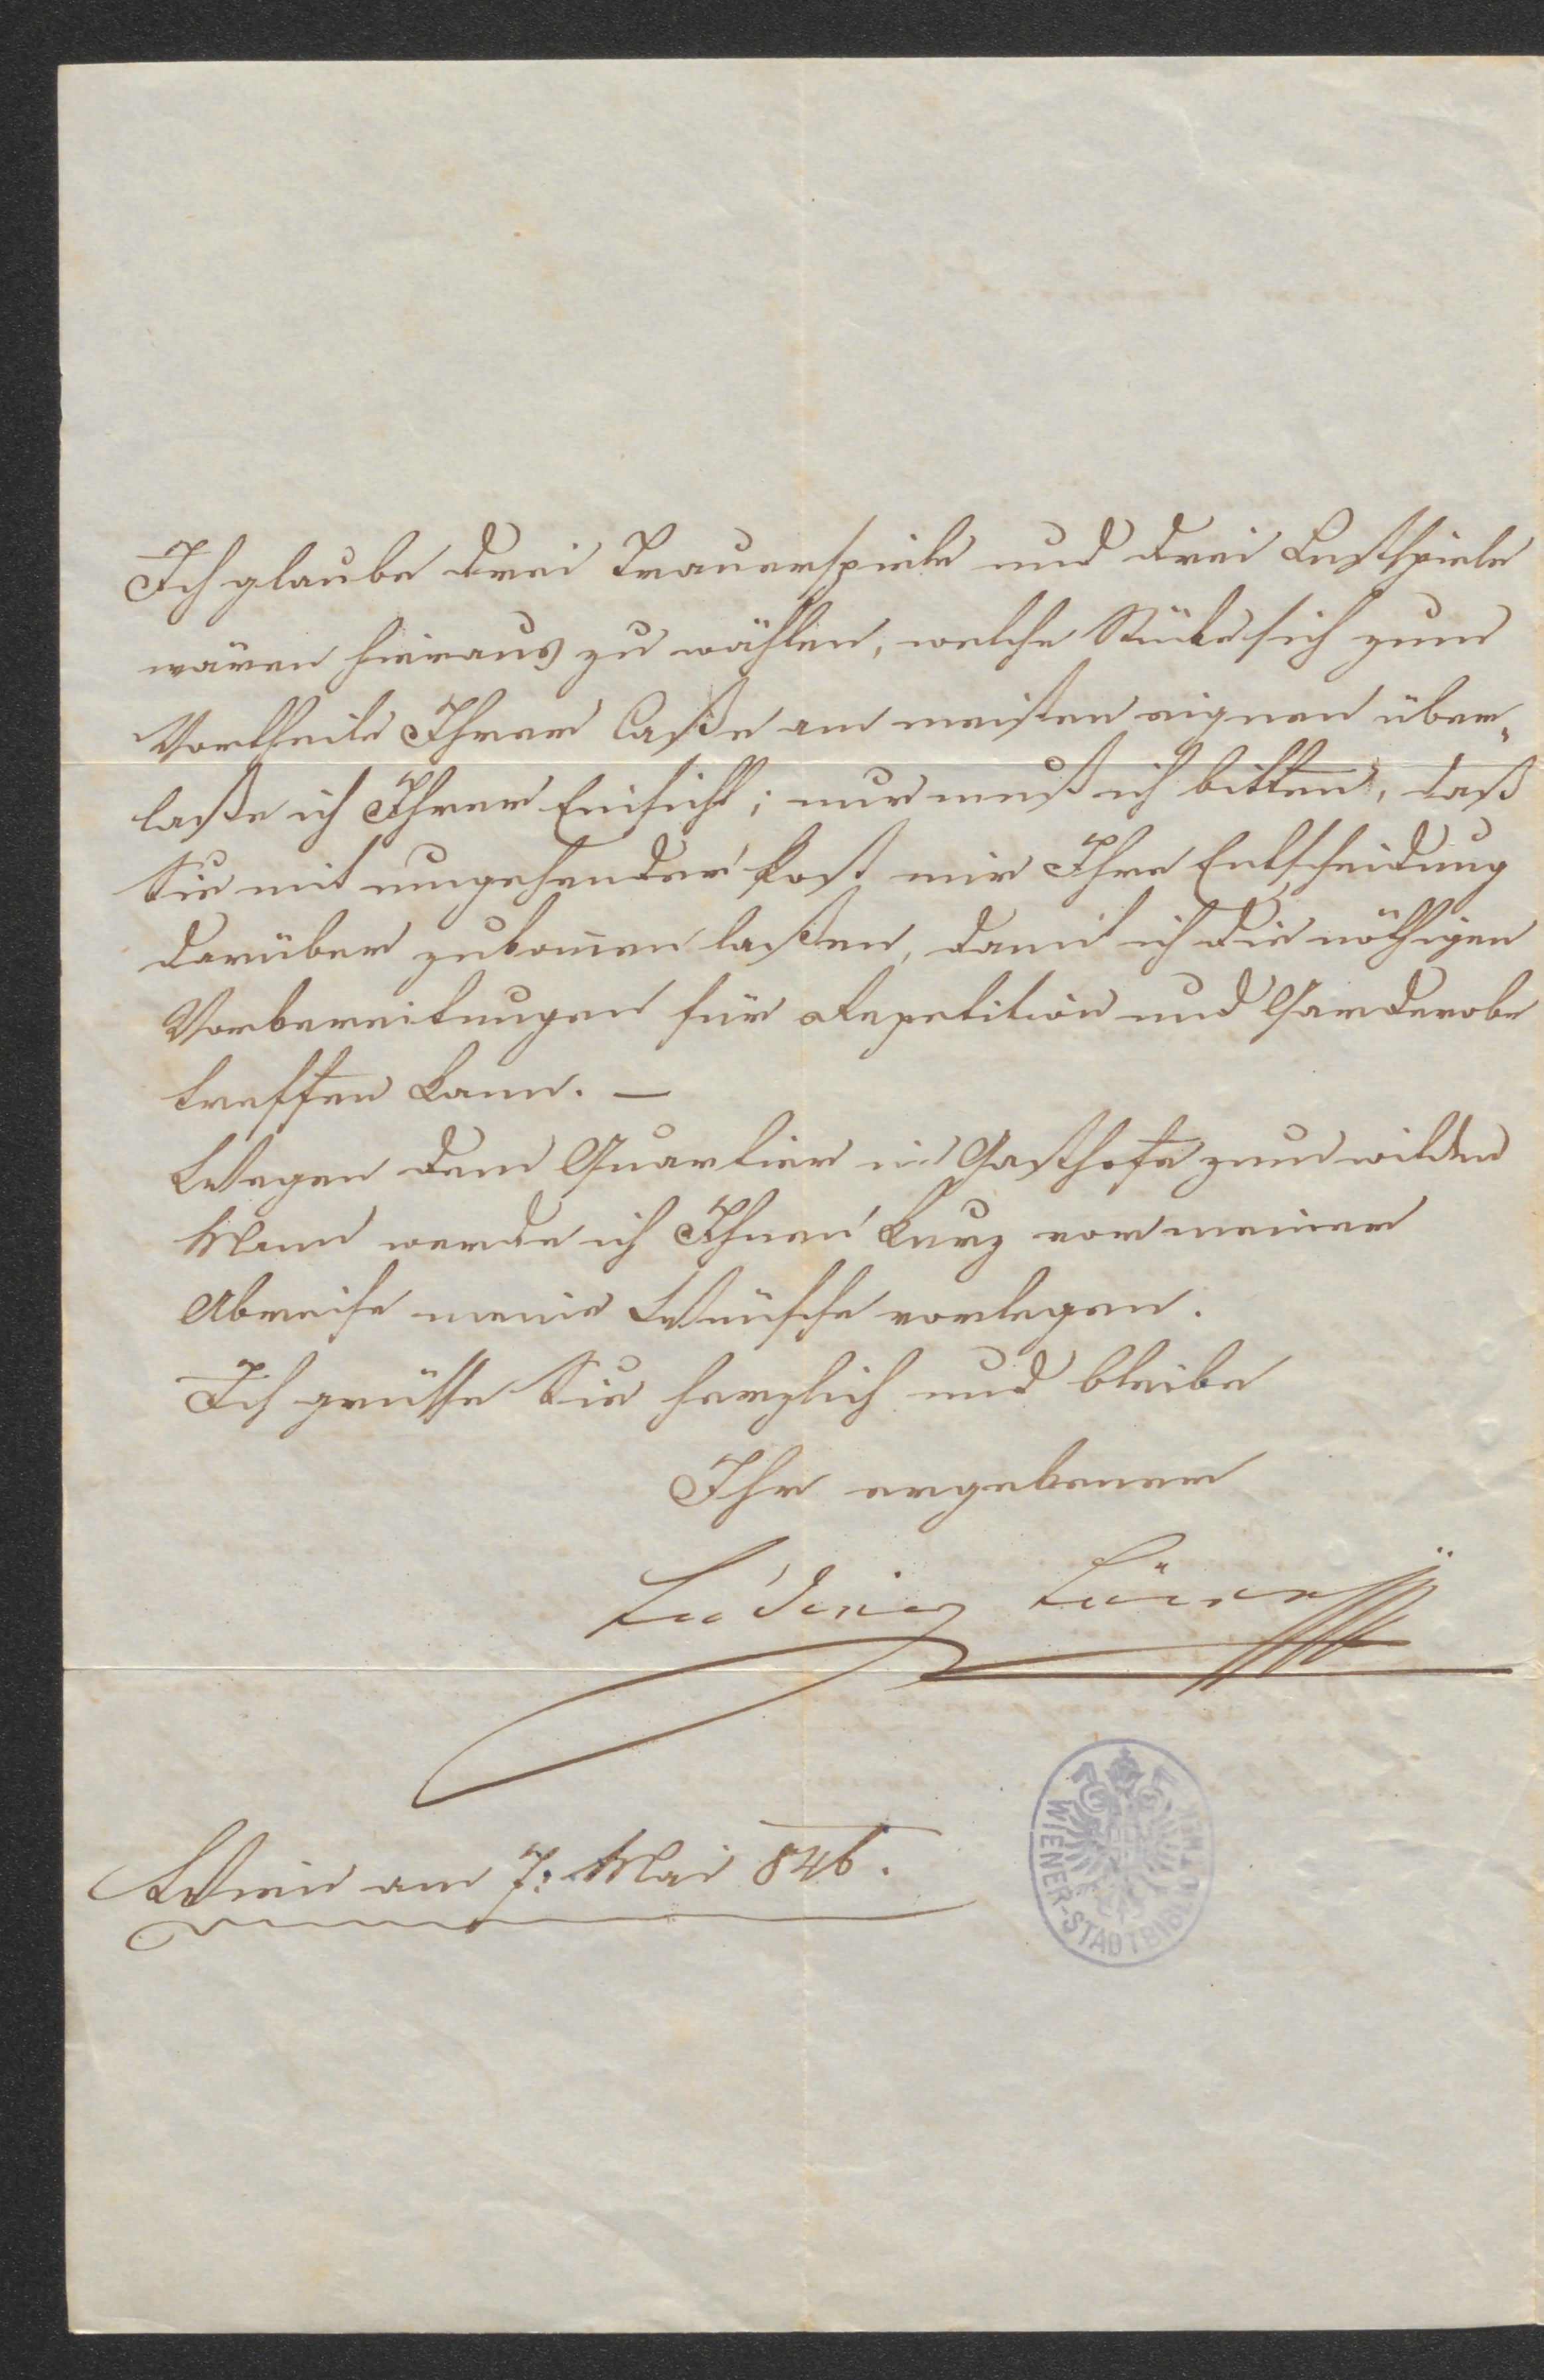 Ich glaube drei Trauerspiele und drei Lustspiele
wären hieraus zu wählen, welche Stücke sich zum
Vortheile Ihrer Caße am meisten eignen über„
laße ich Ihrer Einsicht; nur muß ich bitten, daß
Sie mit umgehender Post mir Ihre Entscheidung
darüber zukom̄en laßen, damit ich die nöthigen
Vorbereitungen für Repetition und Garderobe
treffen kann. —
Wegen dem Quartier im Gasthofe zum wilden
Mann werde ich Ihnen kurz vor meiner
Abreise meine Wünsche vorlegen.
Ich grüsse Sie herzlich und bleibe
Ihr ergebener
Ludwig Löwe
Wien am 7: Mai 846.
WIENER-STADTBIBLIOTHEK